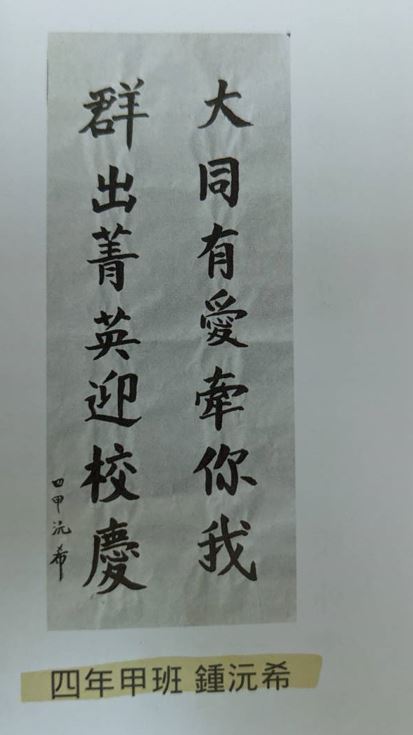 大同有愛牽你我
群出菁英迎校慶
四甲沅希
四年甲班 鍾沅希